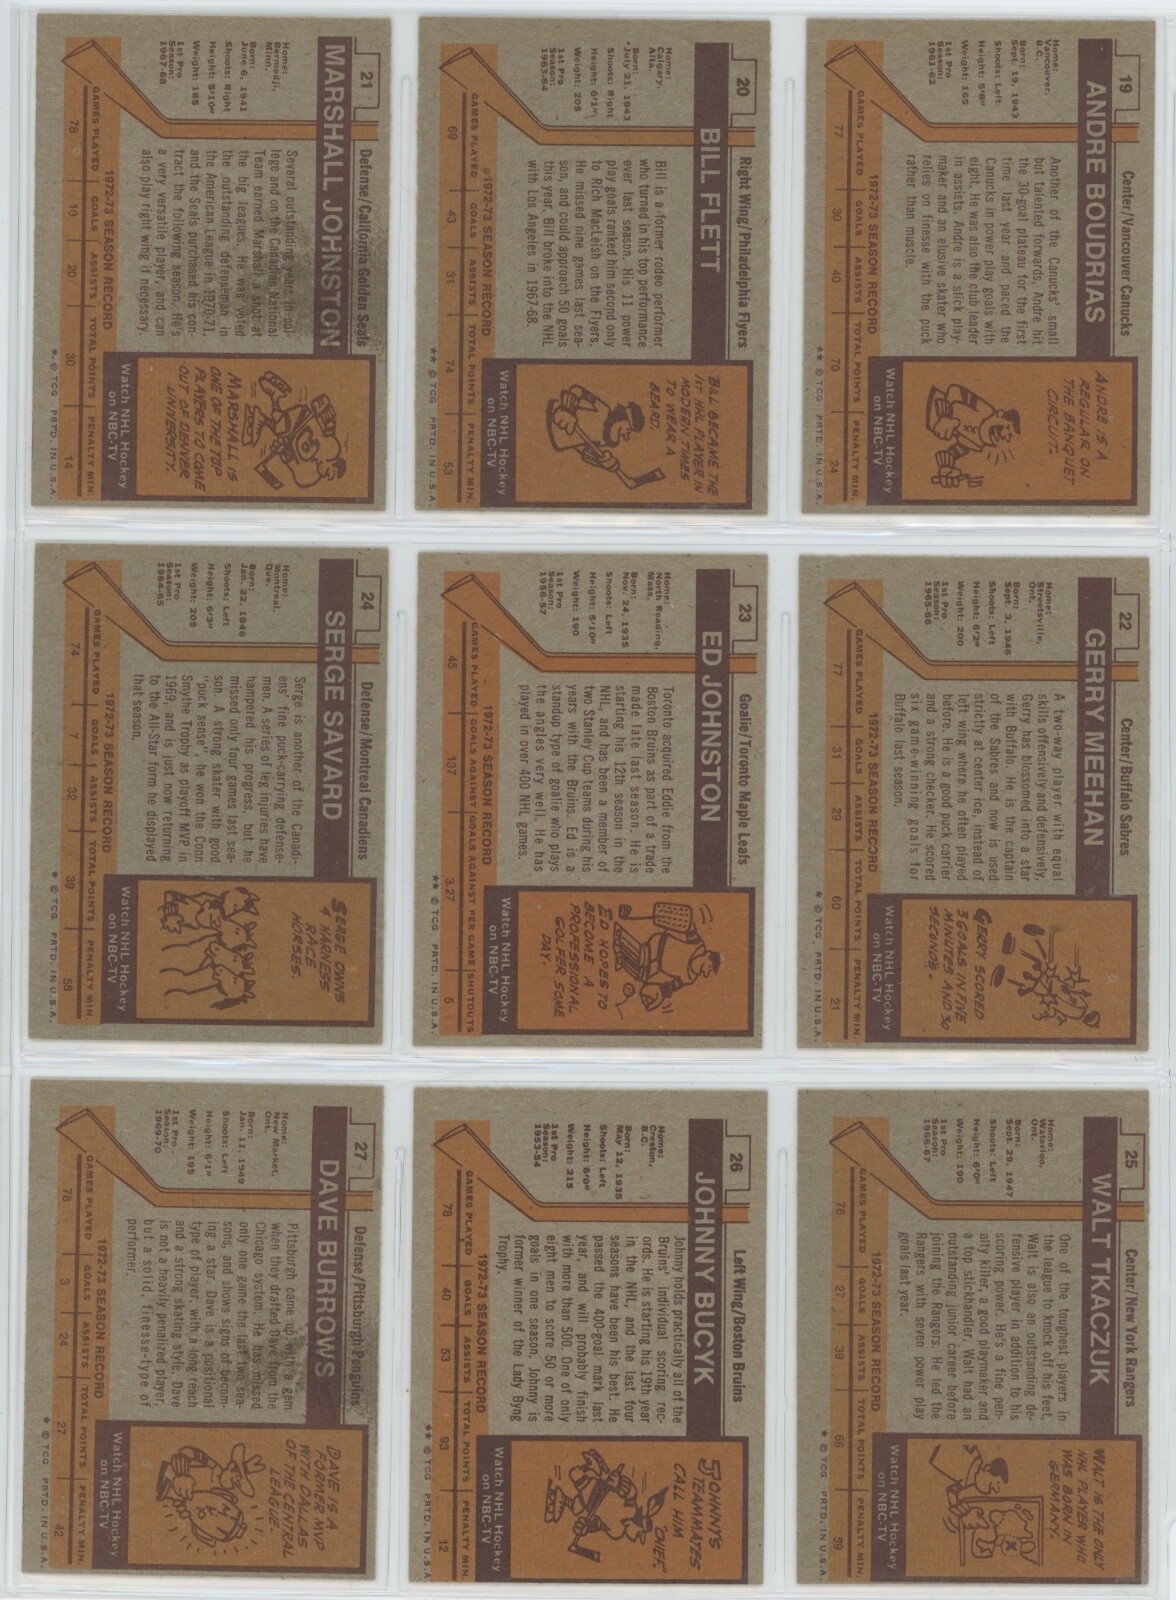 19
Center/Vancouver Canucks
ANDRE BOUDRIAS
Home:
Vancouver,
B.C.
Born:
Sept. 19, 1943
Shoots: Left
Height: 5'8"
Weight: 165
1st Pro
Season:
1961-62
Another of the Canucks' small
but talented forwards, Andre hit
the 30-goal plateau for the first
time last year and paced the
Canucks in power play goals with
eight. He was also the club leader
in assists. Andre is a slick play-
maker and an elusive skater who
relies on finesse with the puck
rather than muscle.
ANDRE IS A
REGULAR ON
THE BANQUET
CIRCUIT.
Watch NHL Hockey
on NBC-TV
1972-73 SEASON RECORD
GAMES PLAYED | GOALS | ASSISTS | TOTAL POINTS | PENALTY MIN.
77 30 40 70 24
** © TCG PRTD. IN U.S.A.
20
Right Wing/Philadelphia Flyers
BILL FLETT
Home:
Calgary,
Alta.
Born:
July 21, 1943
Shoots: Right
Height: 6'1"
Weight: 205
1st Pro
Season:
1963-64
Bill is a former rodeo performer
who turned in his top performance
ever last season. His 11 power
play goals ranked him second only
to Rich MacLeish on the Flyers.
He missed nine games last sea-
son, and could approach 50 goals
this year. Bill broke into the NHL
with Los Angeles in 1967-68.
BILL BECAME THE
1ST NHL PLAYER IN
MODERN TIMES
TO WEAR A
BEARD.
Watch NHL Hockey
on NBC-TV
1972-73 SEASON RECORD
GAMES PLAYED | GOALS | ASSISTS | TOTAL POINTS | PENALTY MIN.
69 43 31 74 53
** © TCG PRTD. IN U.S.A.
21
Defense/California Golden Seals
MARSHALL JOHNSTON
Home:
Bermedji,
Minn.
Born:
June 6, 1941
Shoots: Right
Height: 5'10"
Weight: 185
1st Pro
Season:
1967-68
Several outstanding years in col-
lege and on the Canadian National
Team earned Marshall a shot at
the big leagues. He was voted
the outstanding defenseman in
the American League in 1970-71,
and the Seals purchased his con-
tract the following season. He's
a very versatile player, and can
also play right wing if necessary.
MARSHALL IS
ONE OF THE TOP
PLAYERS TO COME
OUT OF DENVER
UNIVERSITY.
Watch NHL Hockey
on NBC-TV
1972-73 SEASON RECORD
GAMES PLAYED | GOALS | ASSISTS | TOTAL POINTS | PENALTY MIN.
78 10 20 30 14
* © TCG PRTD. IN U.S.A.
22
Center/Buffalo Sabres
GERRY MEEHAN
Home:
Streetsville,
Ont.
Born:
Sept. 3, 1946
Shoots: Left
Height: 6'2"
Weight: 200
1st Pro
Season:
1965-66
A two-way player with equal
skills offensively and defensively,
Gerry has blossomed into a star
with Buffalo. He is the captain
of the Sabres and now is used
strictly at center ice, instead of
left wing where he often played
before. He is a good puck carrier
and a strong checker. He scored
six game-winning goals for
Buffalo last season.
GERRY SCORED
3 GOALS IN FIVE
MINUTES AND 30
SECONDS.
Watch NHL Hockey
on NBC-TV
1972-73 SEASON RECORD
GAMES PLAYED | GOALS | ASSISTS | TOTAL POINTS | PENALTY MIN.
77 31 29 60 21
* © TCG PRTD. IN U.S.A.
23
Goalie/Toronto Maple Leafs
ED JOHNSTON
Home:
North Reading,
Mass.
Born:
Nov. 24, 1935
Shoots: Left
Height: 5'10"
Weight: 190
1st Pro
Season:
1956-57
Toronto acquired Eddie from the
Boston Bruins as part of a trade
made late last season. He is
starting his 12th season in the
NHL, and has been a member of
two Stanley Cup teams during his
years with the Bruins. Ed is a
standup type of goalie who plays
the angles very well. He has
played in over 400 NHL games.
ED HOPES TO
BECOME A
PROFESSIONAL
GOLFER SOME
DAY.
Watch NHL Hockey
on NBC-TV
1972-73 SEASON RECORD
GAMES PLAYED | GOALS AGAINST | GOALS AGAINST PER GAME | SHUTOUTS
45 137 3.27 5
** © TCG PRTD. IN U.S.A.
24
Defense/Montreal Canadiens
SERGE SAVARD
Home:
Montreal,
Que.
Born:
Jan. 22, 1946
Shoots: Left
Height: 6'3"
Weight: 205
1st Pro
Season:
1964-65
Serge is another of the Canadi-
ens' fine puck-carrying defense-
men. A series of leg injuries have
hampered his progress, but he
missed only four games last sea-
son. A strong skater with good
"puck sense" he won the Conn
Smythe Trophy as playoff MVP in
1969, and is just now returning
to the All-Star form he displayed
that season.
SERGE OWNS
4 HARNESS
RACE
HORSES.
Watch NHL Hockey
on NBC-TV
1972-73 SEASON RECORD
GAMES PLAYED | GOALS | ASSISTS | TOTAL POINTS | PENALTY MIN.
74 7 32 39 58
* © TCG PRTD. IN U.S.A.
25
Center/New York Rangers
WALT TKACZUK
Home:
Waterloo,
Ont.
Born:
Sept. 29, 1947
Shoots: Left
Height: 6'0"
Weight: 190
1st Pro
Season:
1966-67
One of the toughest players in
the league to knock off his feet,
Walt is also an outstanding de-
fensive player in addition to his
scoring power. He's a fine pen-
alty killer, a good playmaker and
a top stickhandler. Walt had an
outstanding junior career before
joining the Rangers. He led the
Rangers with seven power play
goals last year.
WALT IS THE ONLY
NHL PLAYER WHO
WAS BORN IN
GERMANY.
Watch NHL Hockey
on NBC-TV
1972-73 SEASON RECORD
GAMES PLAYED | GOALS | ASSISTS | TOTAL POINTS | PENALTY MIN.
76 27 39 66 59
* © TCG PRTD. IN U.S.A.
26
Left Wing/Boston Bruins
JOHNNY BUCYK
Home:
Creston,
B.C.
Born:
May 12, 1935
Shoots: Left
Height: 6'0"
Weight: 215
1st Pro
Season:
1953-54
Johnny holds practically all of the
Bruins' individual scoring rec-
ords. He is starting his 19th year
in the NHL, and the last four
seasons have been his best. He
passed the 400-goal mark last
year, and will probably finish
with more than 500. One of only
eight men to score 50 or more
goals in one season, Johnny is
former winner of the Lady Byng
Trophy.
JOHNNY'S
TEAMMATES
CALL HIM
"CHIEF."
Watch NHL Hockey
on NBC-TV
1972-73 SEASON RECORD
GAMES PLAYED | GOALS | ASSISTS | TOTAL POINTS | PENALTY MIN.
78 40 53 93 12
** © TCG PRTD. IN U.S.A.
27
Defense/Pittsburgh Penguins
DAVE BURROWS
Home:
New Market,
Ont.
Born:
Jan. 11, 1949
Shoots: Left
Height: 6'1"
Weight: 195
1st Pro
Season:
1969-70
Pittsburgh came up with a gem
when they drafted Dave from the
Chicago system. He has missed
only one game the last two sea-
sons, and shows signs of becom-
ing a star. Dave is a positional
type of player, with a long reach
and a strong skating style. Dave
is not a heavily penalized player,
but a solid, finesse-type of
performer.
DAVE IS A
FORMER MVP
WITH DALLAS
OF THE CENTRAL
LEAGUE.
Watch NHL Hockey
on NBC-TV
1972-73 SEASON RECORD
GAMES PLAYED | GOALS | ASSISTS | TOTAL POINTS | PENALTY MIN.
78 3 24 27 42
* © TCG PRTD. IN U.S.A.